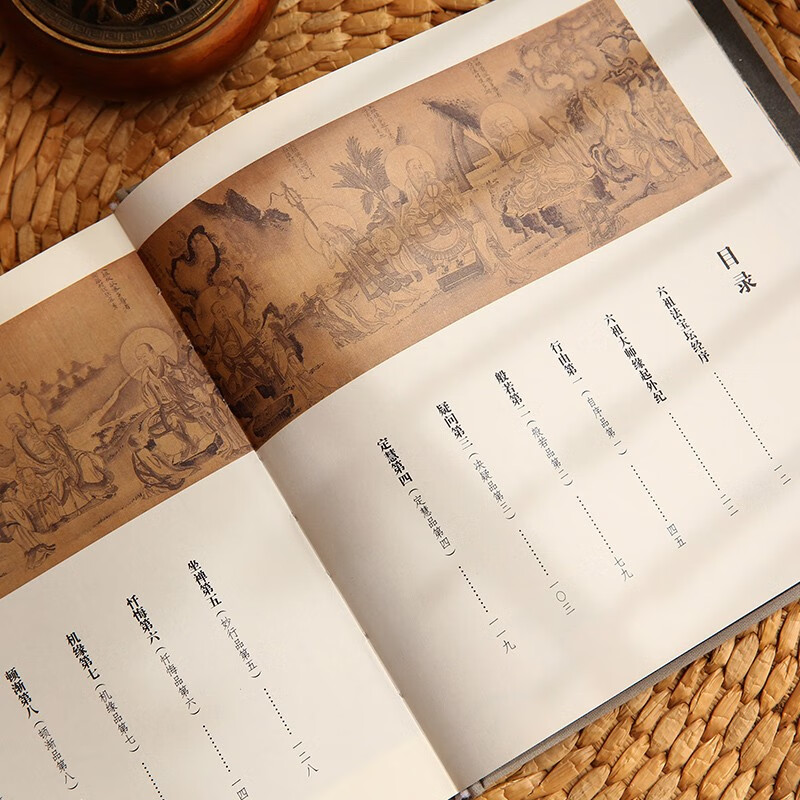 目录
六祖法宝坛经序……………一二
六祖大师缘起外纪……………二三
行由第一（自序品第一）……………四五
般若第二（般若品第二）……………七九
疑问第三（决疑品第三）……………一〇三
定慧第四（定慧品第四）……………一一九
坐禅第五（妙行品第五）……………一二八
忏悔第六（忏悔品第六）……………一四
机缘第七（机缘品第七）……
顿渐第八（顿渐品第八）